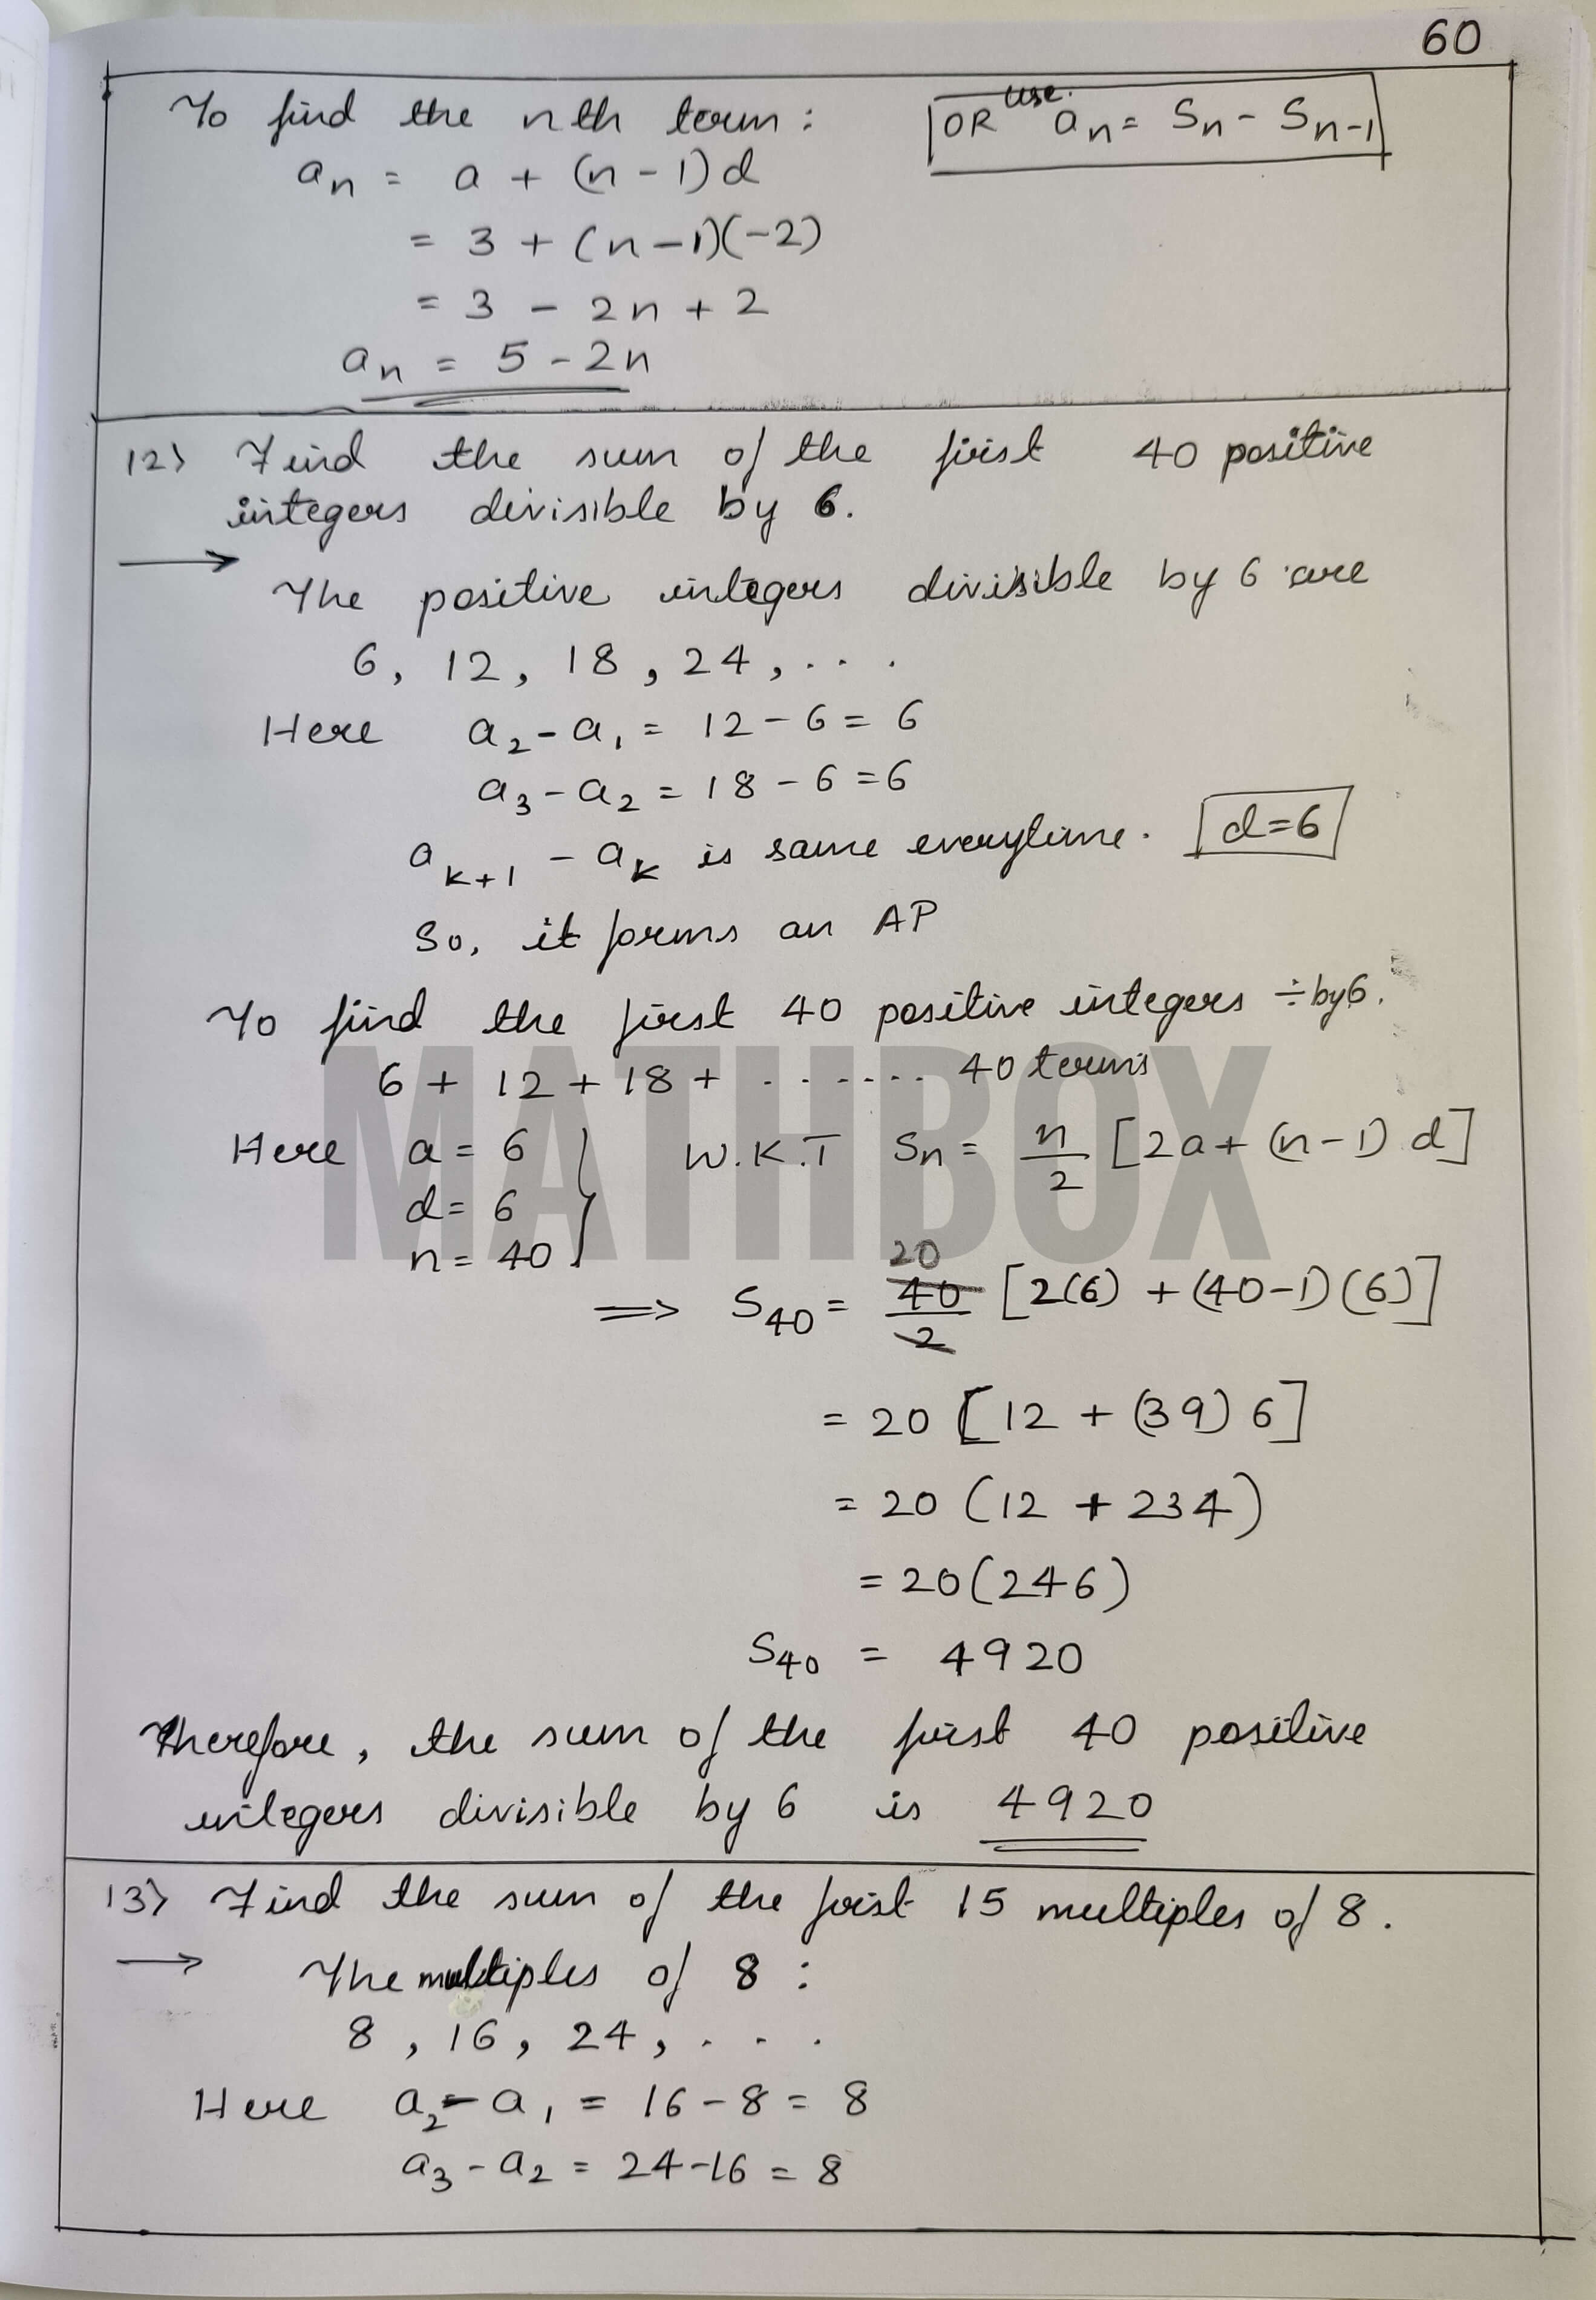 60
To find the nth term :
OR use a_n = S_n - S_{n-1}
a_n = a + (n-1)d
= 3 + (n-1)(-2)
= 3 - 2n + 2
a_n = 5 - 2n
12) Find the sum of the first 40 positive
integers divisible by 6.
→
The positive integers divisible by 6 are
6, 12, 18, 24, . . .
Here a_2 - a_1 = 12 - 6 = 6
a_3 - a_2 = 18 - 6 = 6
a_{k+1} - a_k is same everytime. d=6
So, it forms an AP
To find the first 40 positive integers ÷ by 6.
6 + 12 + 18 + . . . . . . . 40 terms
MATHBOX
Here a = 6
d = 6
n = 40 }
W.K.T S_n = n/2 [2a + (n-1) d]
20
⇒ S_40 = 40/2 [2(6) + (40-1)(6)]
= 20 [12 + (39) 6]
= 20 (12 + 234)
= 20(246)
S_40 = 4920
Therefore, the sum of the first 40 positive
integers divisible by 6 is 4920
13) Find the sum of the first 15 multiples of 8.
→ The multiples of 8 :
8 , 16 , 24 , . . .
Here a_2 - a_1 = 16 - 8 = 8
a_3 - a_2 = 24 - 16 = 8